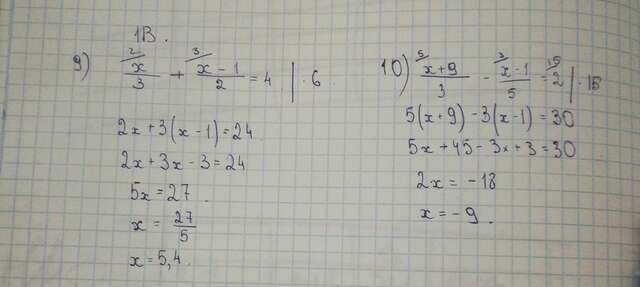 1В.
9) ²/x/3 + ³/x-1/2 = 4 | · 6
2x+3(x-1)=24
2x+3x-3=24
5x=27.
x = 27/5
x=5,4.
10) ⁵/x+9/3 - ³/x-1/5 = ¹⁵/2 | · 15
5(x+9)-3(x-1)=30
5x+45-3x+3=30
2x=-18
x=-9.